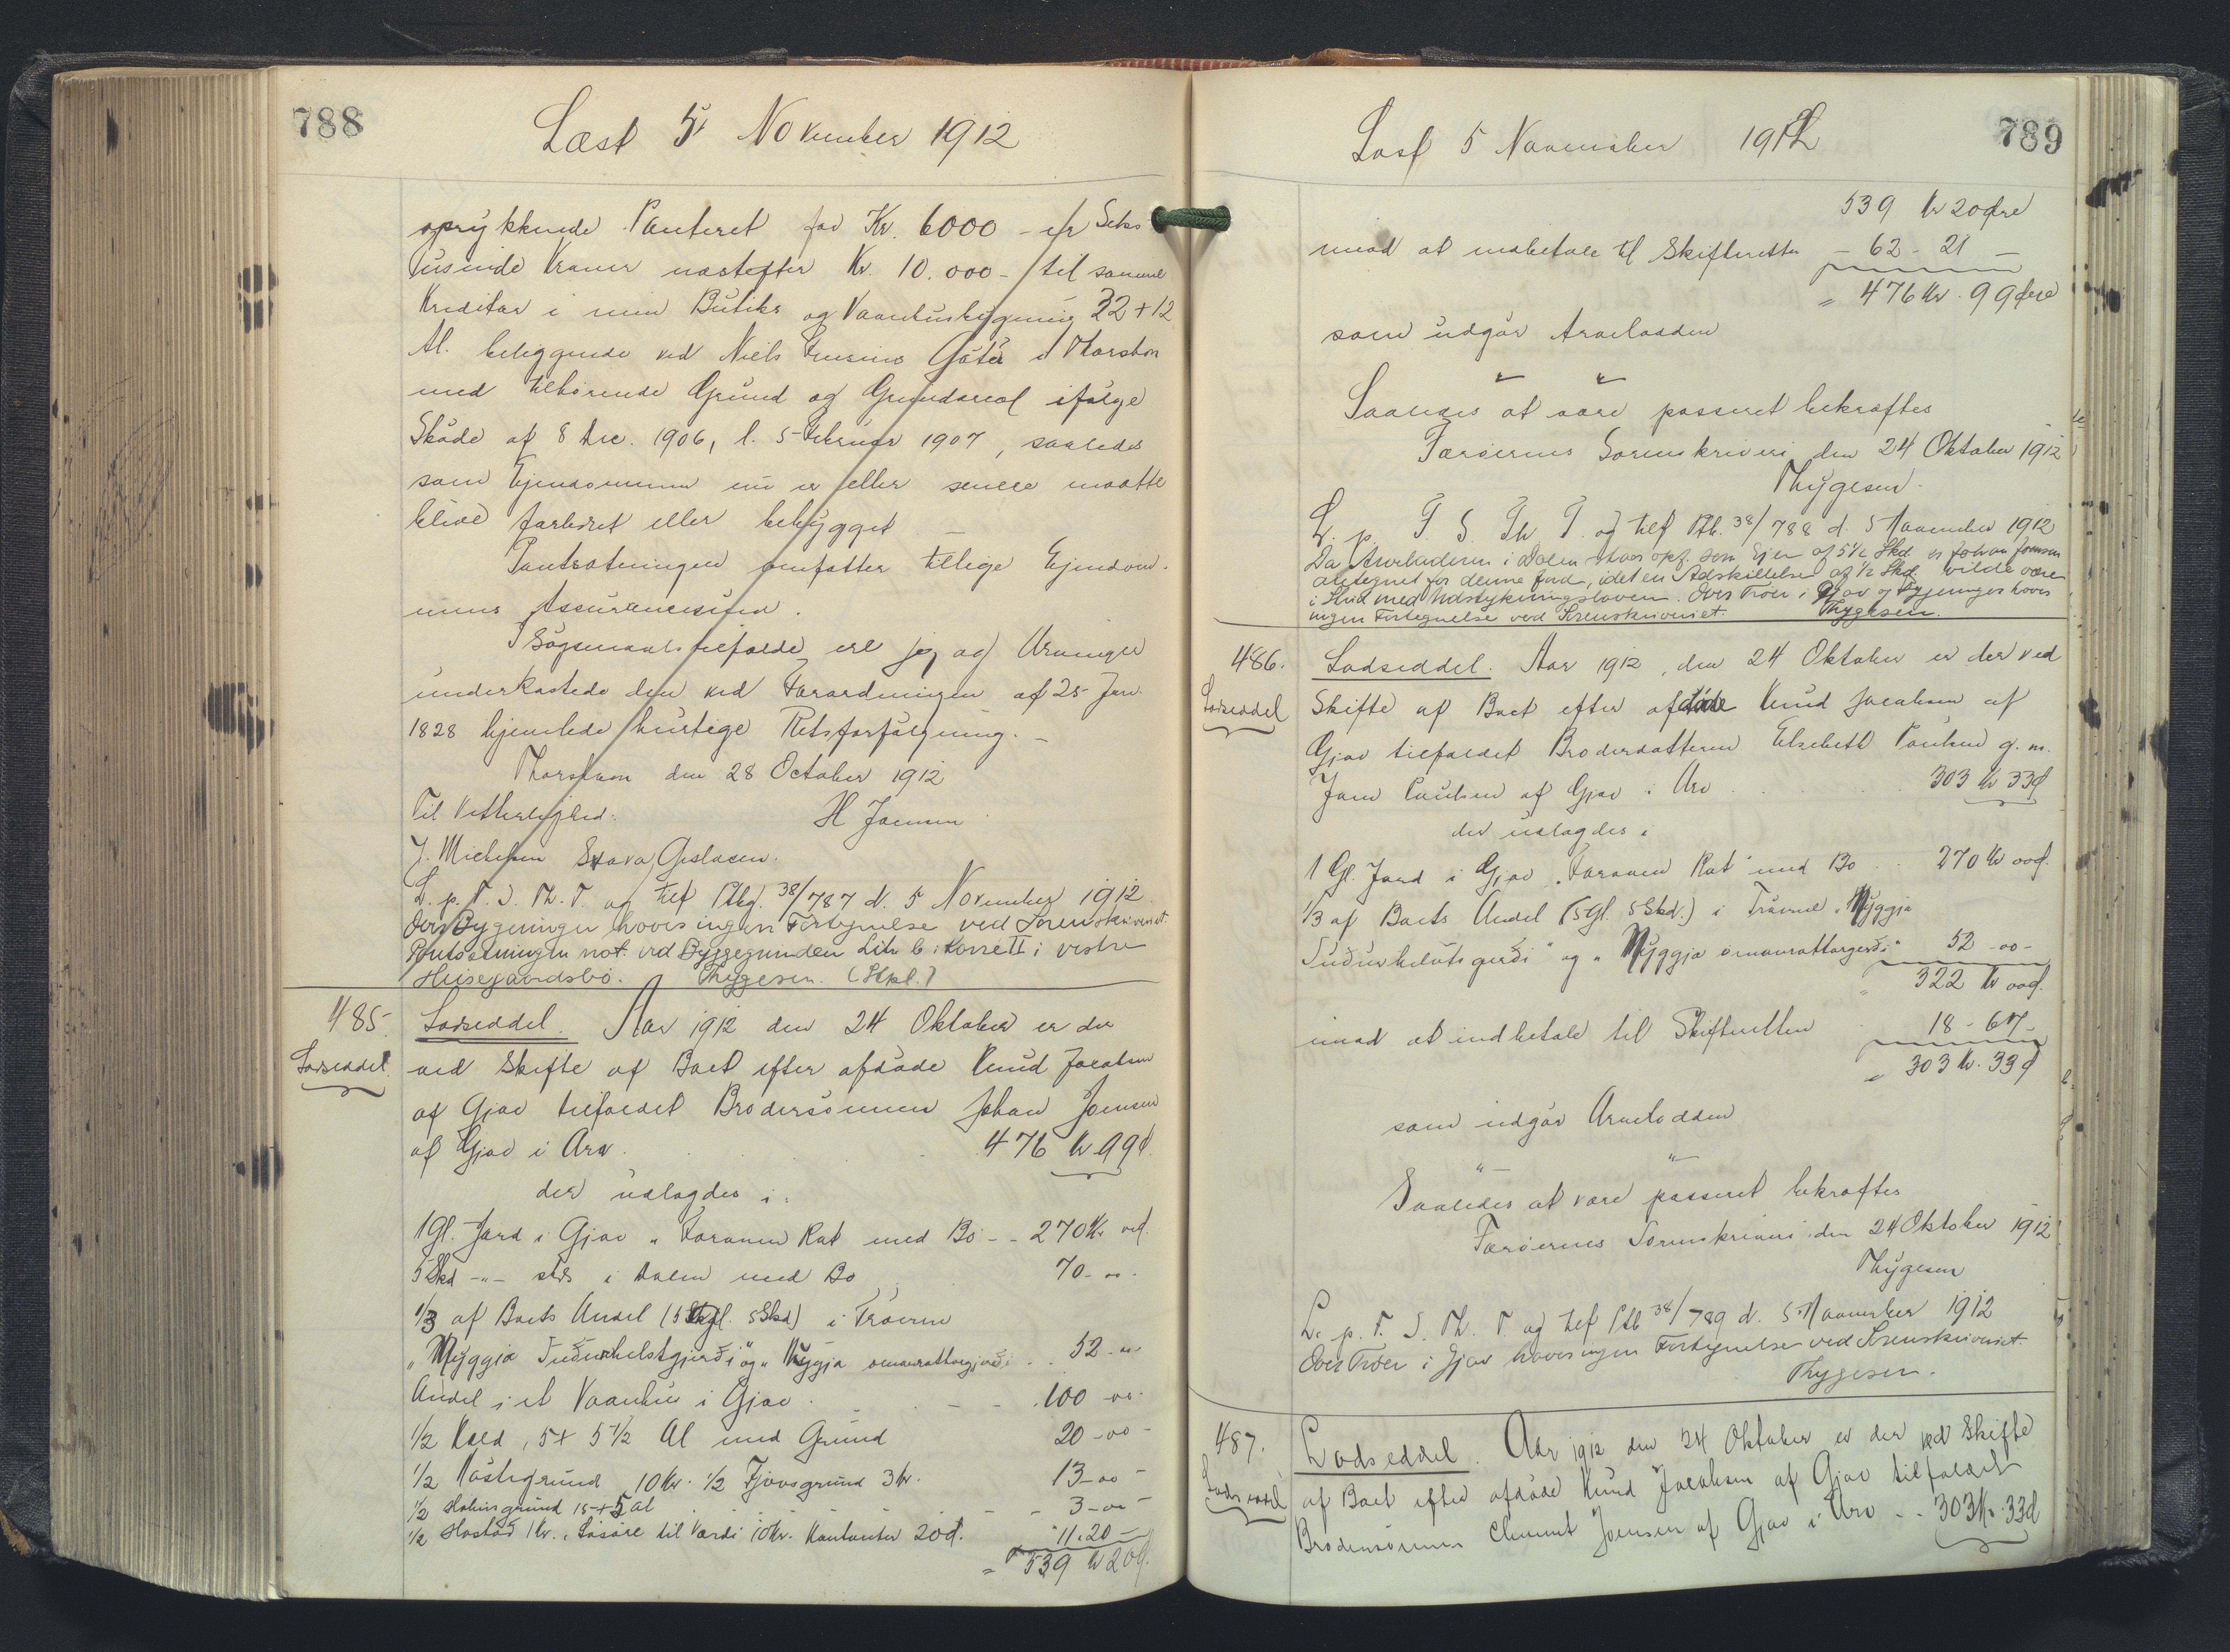 788
Læst 5' November 1912
oprykkende Panteret for Kr. 6000 - er Seks
tusinde Kroner næstefter Kr. 10.000 - til samme
Kreditor i min Butiks og Vaanhusbygning 22 + 12
Al. beliggende ved Niels Finsens Gøta i Thorshavn
med tilhørende Grund og Grundareal ifølge
Skøde af 8 Dec. 1906, l. 5 Februar 1907, saaledes
som Ejendommen nu er eller senere maatte
blive forbedret eller bebygget. -
Pantsætningen omfatter tillige Ejendom-
mens Assurancesum.
I Søgsmaalstilfælde ere jeg og Arvinger
underkastede den ved Forordningen af 25 Jan.
1828 hjemlede hurtige Retsforfølgning. -
Thorshavn den 28 October 1912
Til Vitterlighed: H Joensen
J. Michelsen Gislasen.
L. p. T. S. Th. T. og tilf Ptbg. 38/787 d. 5 November 1912
Over Bygninger haves ingen Fortegnelse ved Sorenskriveriet.
Pantsætningen not. ved Byggegrunden Litr 6 i Karré II i vestre
Husegaardsbø. Thygesen. (Skpl.)
485. Lodseddel. Aar 1912 den 24 Oktober er der
Lodseddel. ved Skifte af Boet efter afdøde Knud Jacobsen
af Gjov tilfaldet Brodersønnen Johan Joensen
af Gjov i Arv . . . . 476 kr 99 ø.
der udlagdes i:
1 Gl. Jord i Gjov "Foraman Rat med Bø - - 270 Kr oo ø.
5 Skd -"- stds i Dalen med Bø 70 - oo -
1/3 af Boets Andel (5 gl. 5 Skd) i Trøerne
"Nyggja Suðurhelutsgjerði" og "Nyggja omanrattargjerði - 52 - oo
Andel i et Vaanhus i Gjov . - - - 100 - oo -
1/2 Kæld, 5 + 5 1/2 Al med Grund 20 - oo -
1/2 Nøstegrund 10 Kr. 1/2 Fjoosgrund 3 kr. 13 - oo -
1/2 grund 15 + 5 al - - 3 - oo -
1/2 Høstað 1 Kr., Løsøre til Værdi 10 Kr. Kontanter 20 ø. " 11. 20 -
= 539 kr 20 ø.
789
Læst 5 November 1912
539 kr 20 Øre
imod at indbetale til Skifteretten - 62 - 21 -
= 476 Kr. 99 Øre
som udgør Arvelodden
" "
Saaledes at være passeret bekræftes
Færøernes Sorenskriveri den 24 Oktober 1912
Thygesen.
L. p. T. S. Th T. og tilf Ptb. 38/788 d. 5 November 1912
Da Arveladeren i Dalen staar opf. som Ejer af 5 1/2 Skd er Johan Joensen
antegnet for denne Jord, idet en Adskillelse af 1/2 Skd vilde være
i Strid med Udstykningsloven. Over Trøer i Gjov og Bygninger haves
ingen Fortegnelse ved Sorenskriveriet. Thygesen.
486. Lodseddel. Aar 1912, den 24 Oktober er der ved
Lodseddel Skifte af Boet efter afdøde Knud Jacobsen af
Gjov tilfaldet Broderdatteren Elsebeth Poulsen g. m.
Joen Poulsen af Gjov i Arv . . . . 303 kr 33 ø
der udlagdes i
1 Gl. Jord i Gjov "Foraman Rat" med Bø . . 270 Kr oo ø.
1/3 af Boets Andel (5 Gl. 5 Skd.) i Trøerne "Nyggja
Suðurhelutsgerði" og "Nyggja omanrattargerði" 52 - oo -
" 322 kr oo ø.
imod at indbetale til Skifteretten 18 - 67 -
= 303 kr. 33 ø
som udgør Arvelodden
" - " -
Saaledes at være passeret bekræftes
Færøernes Sorenskriveri den 24 Oktober 1912
Thygesen
L. p. T. S. Th. T og tilf Ptb 38/789 d. 5 November 1912
Over Trøer i Gjov haves ingen Fortegnelse ved Sorenskriveriet.
Thygesen.
487. Lodseddel. Aar 1912 den 24 Oktober er der ved Skifte
Lodseddel af Boet efter afdøde Knud Jacobsen af Gjov tilfaldet
Brodersønnen Clement Joensen af Gjov i Arv - . 303 Kr. 33 ø